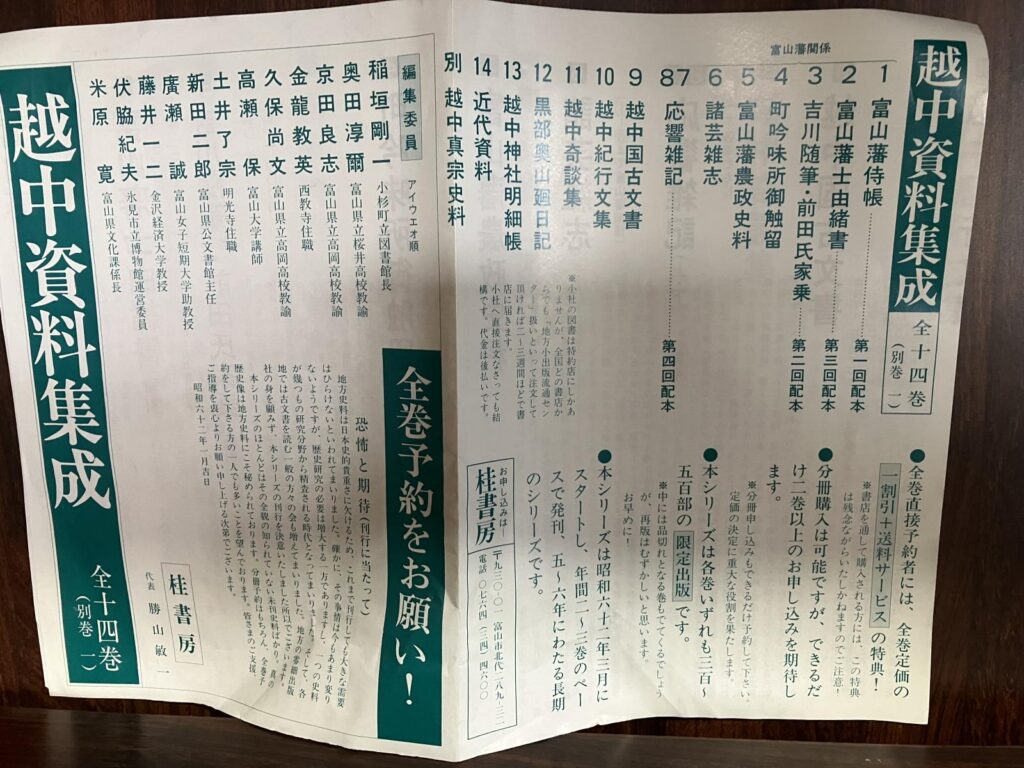 越中資料集成
全十四巻
(別巻一)
富山藩関係
1 富山藩侍帳………第一回配本
2 富山藩士由緒書………第三回配本
3 吉川随筆・前田氏家乗……第二回配本
4 町吟味所御触留
5 富山藩農政史料
6 諸芸雑志
87 応響雑記………第四回配本
9 越中国古文書
10 越中紀行文集
11 越中奇談集
12 黒部奥山廻日記
13 越中神社明細帳
14 近代資料
別 越中真宗史料
※小社の図書は特約店にしかあ
りませんが、全国どの書店か
らでも「地方小出版流通セン
ター」扱いといって注文して
頂ければ二〜三週間ほどで書
店に届きます。
小社へ直接注文なさっても結
構です。代金は後払いです。
●全巻直接予約者には、全巻定価の
一割引+送料サービス の特典!
※書店を通して購入される方には、この特典
は残念ながらいたしかねますのでご注意!
●分冊購入は可能ですが、できるだ
け二巻以上のお申し込みを期待し
ます。
※分冊申し込みもできるだけ予約して下さい。
定価の決定に重大な役割を果たします。
●本シリーズは各巻いずれも三百〜
五百部の 限定出版 です。
※中には品切れとなる巻もでてくるでしょう
が、再版はむずかしいと思います。
お早めに!
●本シリーズは昭和六十二年三月に
スタートし、年間二〜三巻のペー
スで発刊、五〜六年にわたる長期
のシリーズです。
お申し込みは—
桂書房
〒九三〇-〇一 富山市北代二八九-三二
電話 〇七六四(三四)四六〇〇
編集委員
アイウェオ順
稲垣剛一 小杉町立図書館長
奥田淳爾 富山県立桜井高校教諭
京田良志 富山県立高岡高校教諭
金龍教英 西教寺住職
久保尚文 富山県立高岡高校教諭
高瀬保 富山大学講師
土井了宗 明光寺住職
新田二郎 富山県公文書館主任
廣瀬誠 富山女子短期大学助教授
藤井一二 金沢経済大学教授
伏脇紀夫 氷見市立博物館運営委員
米原寛 富山県文化課係長
全巻予約をお願い!
恐怖と期待(刊行に当たって)
地方史料は日本史的貴重さに欠けるため、これまで刊行しても大きな需要
はひらけないといわれてまいりました。確かに、その事情は今もあまり変り
ないようですが、歴史研究の必要は増大する一方でありますし、一つの史料
が幾つもの研究分野から精査される時代となってまいりました。そして、各
地では古文書を読む一般の方々の会も増えてまいりました。地方の零細出版
社の身を顧みず、本シリーズの刊行を決意いたしました所以でございます。
本シリーズのほとんどはその全貌の知られていない未刊史料ばかり。真の
歴史像は地方史料にこそ秘められております。分冊予約はもちろん、全巻予
約をして下さる方の一人でも多いことを望んでおります。皆さまのご支援、
ご指導を衷心よりお願い申し上げる次第でございます。
昭和六十二年一月吉日
桂書房
代表 勝山敏一
越中資料集成
全十四巻
(別巻一)